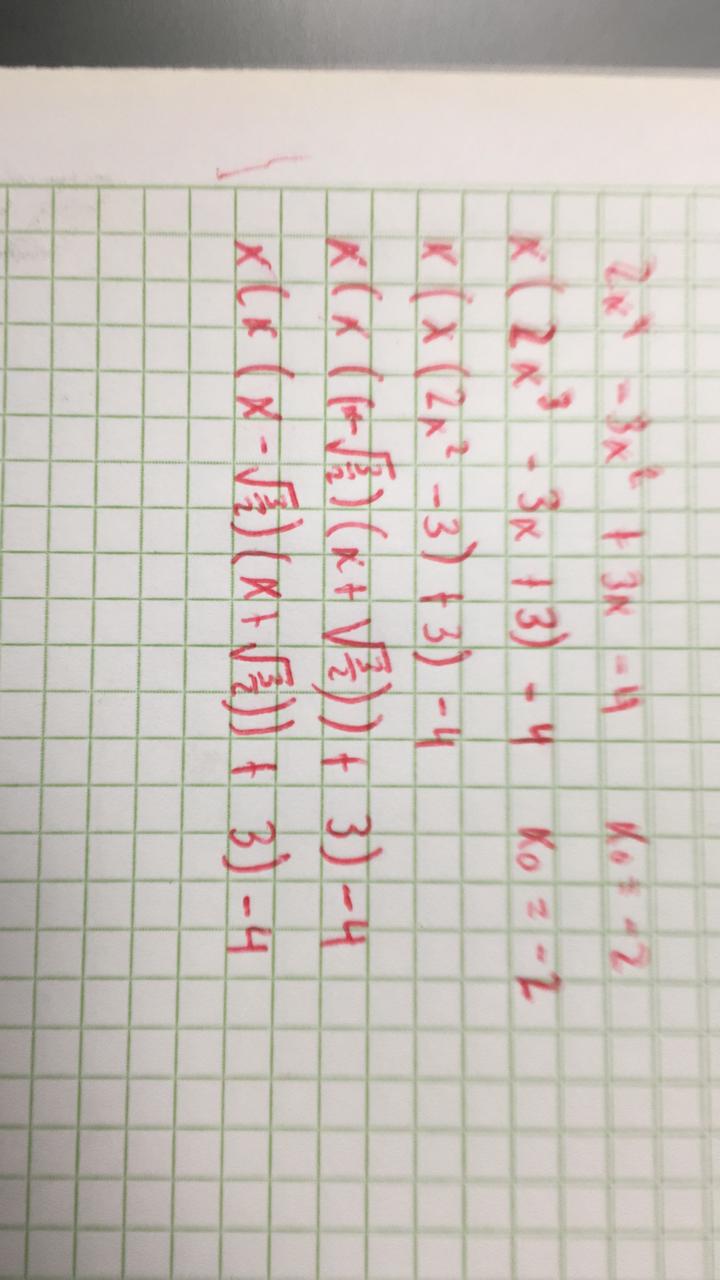 2x⁴ - 3x² + 3x - 4 x₀ = -2
x(2x³ - 3x + 3) - 4 x₀ = -2
x(x(2x² - 3) + 3) - 4
x(x((x-√(3/2))(x+√(3/2))) + 3) - 4
x(x(x-√(3/2))(x+√(3/2))) + 3) - 4